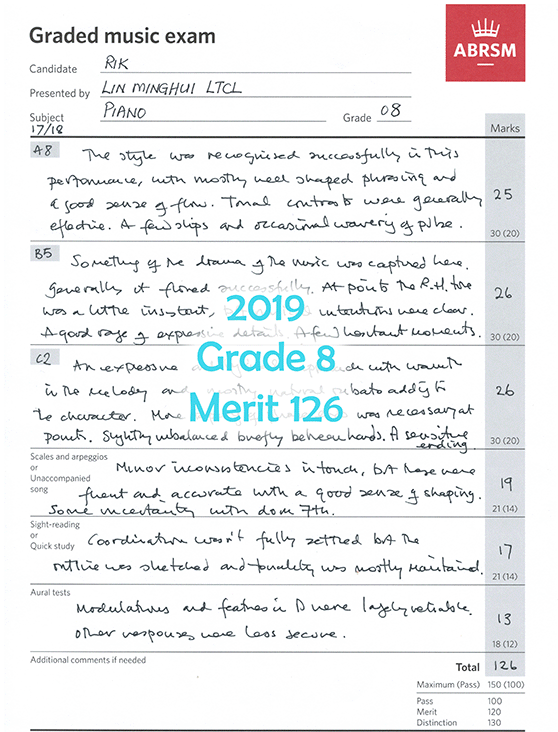 Graded music exam
ABRSM
Candidate RIK
Presented by LIN MINGHUI LTCL
Subject PIANO Grade 08
17/18 Marks
A8 The style was recognised successfully in this
performance, with mostly well shaped phrasing and
a good sense of flow. Tonal contrasts were generally
effective. A few slips and occasional wavering of pulse.
25
30 (20)
B5 Something of the drama of the music was captured here.
Generally it flowed successfully. At points the R.H. tone
was a little insistent, intentions were clear.
A good range of expressive detail. A few hesitant moments.
26
30 (20)
2019
Grade 8
Merit 126
C2 An expressive with warmth
in the melody and mostly natural rubato adding to
the character. More was necessary at
points. Slightly unbalanced briefly between hands. A sensitive
ending.
26
30 (20)
Scales and arpeggios
or
Unaccompanied
song
Minor inconsistencies in touch, but these were
fluent and accurate with a good sense of shaping.
Some uncertainty with dom 7th.
19
21 (14)
Sight-reading
or
Quick study
Coordination wasn't fully settled but the
outline was sketched and tonality was mostly maintained.
17
21 (14)
Aural tests
Modulations and features in D were largely reliable.
Other responses were less secure.
13
18 (12)
Additional comments if needed
Total 126
Maximum (Pass) 150 (100)
Pass 100
Merit 120
Distinction 130